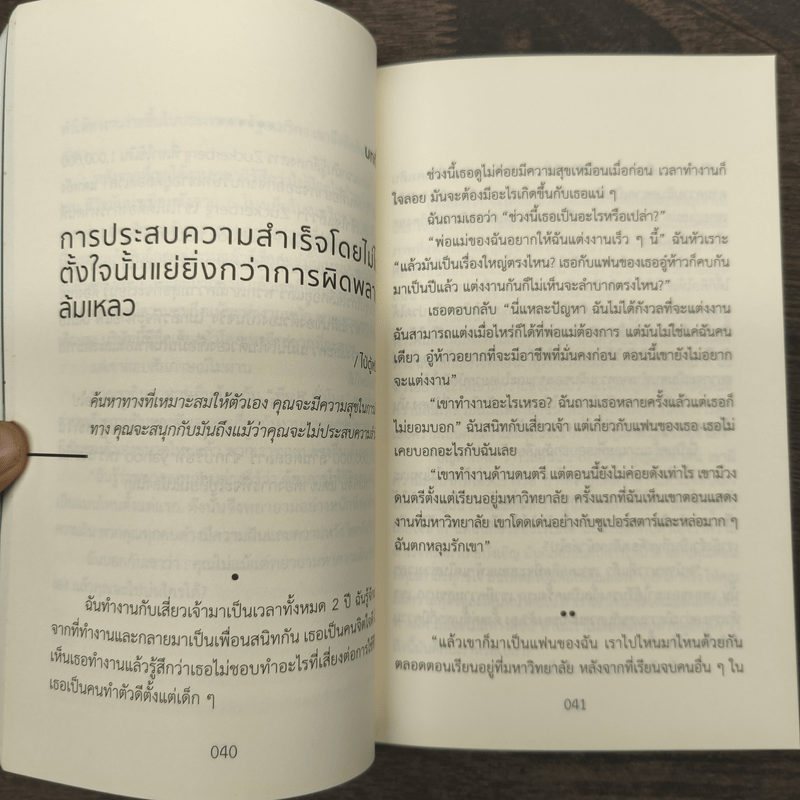 การประสบความสำเร็จโดยไม่ไ
ตั้งใจนั้นแย่ยิ่งกว่าการผิดพลา
ล้มเหลว
ค้นหาทางที่เหมาะสมให้ตัวเอง คุณจะมีความสุขในการ
ทาง คุณจะสนุกกับมันถึงแม้ว่าคุณจะไม่ประสบความ
•
ฉันทำงานกับเสี่ยวเจ้ามาเป็นเวลาทั้งหมด 2 ปี ฉันรู้จัก
จากที่ทำงานและกลายมาเป็นเพื่อนสนิทกัน เธอเป็นคนจิตใจดี
เห็นเธอทำงานแล้วรู้สึกว่าเธอไม่ชอบทำอะไรที่เสี่ยงต่อการ
เธอเป็นคนทำตัวดีตั้งแต่เด็ก ๆ
040
ช่วงนี้เธอดูไม่ค่อยมีความสุขเหมือนเมื่อก่อน เวลาทำงานก็
ใจลอย มันจะต้องมีอะไรเกิดขึ้นกับเธอแน่ ๆ
ฉันถามเธอว่า “ช่วงนี้เธอเป็นอะไรหรือเปล่า?”
“พ่อแม่ของฉันอยากให้ฉันแต่งงานเร็ว ๆ นี้” ฉันหัวเราะ
“แล้วมันเป็นเรื่องใหญ่ตรงไหน? เธอกับแฟนของเธออู๋ห้าวก็คบกัน
มาเป็นปีแล้ว แต่งงานกันก็ไม่เห็นจะลำบากตรงไหน?”
เธอตอบกลับ “นี่แหละปัญหา ฉันไม่ได้กังวลที่จะแต่งงาน
ฉันสามารถแต่งเมื่อไหร่ก็ได้ที่พ่อแม่ต้องการ แต่มันไม่ใช่แค่ฉันคน
เดียว อู๋ห้าวอยากที่จะมีอาชีพที่มั่นคงก่อน ตอนนี้เขายังไม่อยาก
จะแต่งงาน”
“เขาทำงานอะไรเหรอ? ฉันถามเธอหลายครั้งแล้วแต่เธอก็
ไม่ยอมบอก” ฉันสนิทกับเสี่ยวเจ้า แต่เกี่ยวกับแฟนของเธอ เธอไม่
เคยบอกอะไรกับฉันเลย
“เขาทำงานด้านดนตรี แต่ตอนนี้ยังไม่ค่อยดังเท่าไร เขามีวง
ดนตรีตั้งแต่เรียนอยู่มหาวิทยาลัย ครั้งแรกที่ฉันเห็นเขาตอนแสดง
งานที่มหาวิทยาลัย เขาโดดเด่นอย่างกับซูเปอร์สตาร์และหล่อมาก ๆ
ฉันตกหลุมรักเขา”
••
“แล้วเขาก็มาเป็นแฟนของฉัน เราไปไหนมาไหนด้วยกัน
ตลอดตอนเรียนอยู่ที่มหาวิทยาลัย หลังจากที่เรียนจบคนอื่น ๆ ใน
041